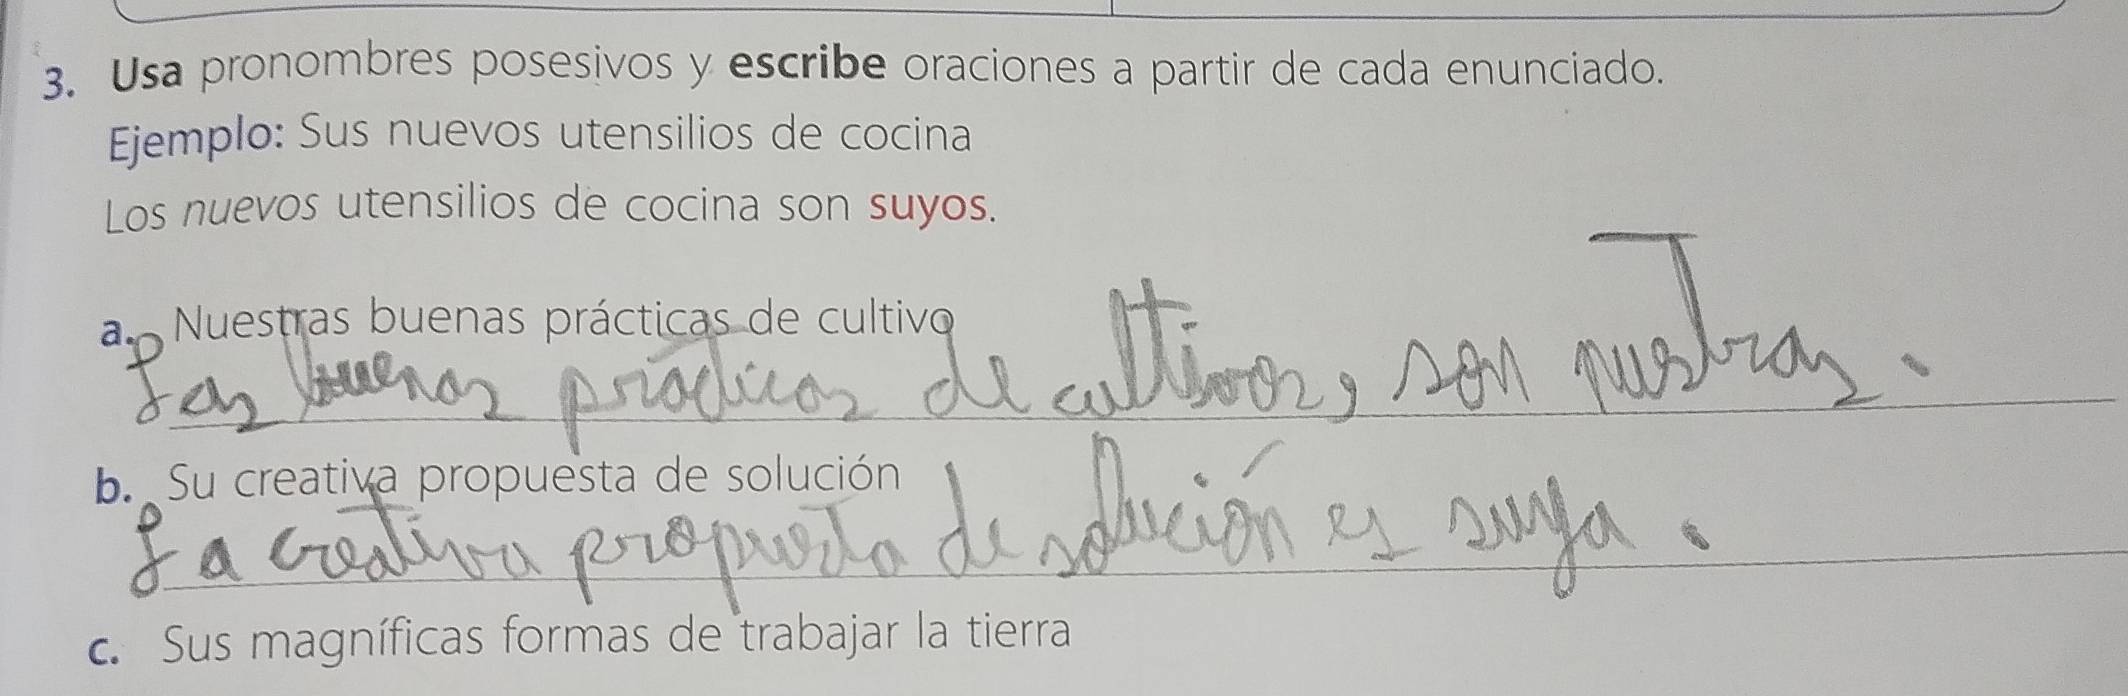 3. Usa pronombres posesivos y escribe oraciones a partir de cada enunciado.
Ejemplo: Sus nuevos utensilios de cocina
Los nuevos utensilios de cocina son suyos.
a. Nuestras buenas prácticas de cultivo
Las buenas prácticas de cultivos, son nuestras.
b. Su creativa propuesta de solución
La creativa propuesta de solución es suya.
c. Sus magníficas formas de trabajar la tierra